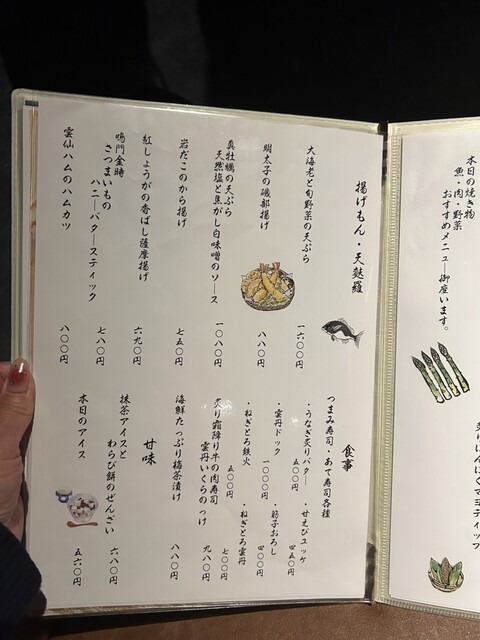 本日の焼き物
魚・肉・野菜
おすすめメニュー御座います。
揚げもん・天麩羅
大海老と旬野菜の天ぷら
一六〇〇円
明太子の磯部揚げ
八八〇円
真牡蠣の天ぷら
天然塩と焦がし白味噌のソース
一〇八〇円
岩だこのから揚げ
七五〇円
紅しょうがの香ばし薩摩揚げ
六九〇円
鳴門金時
さつまいもの
ハニーバタースティック
七八〇円
雲仙ハムのハムカツ
八〇〇円
食事
つまみ寿司・あて寿司各種
・うなぎ炙りバター
五〇〇円
・甘えびユッケ
四五〇円
・雲丹ドック
一〇〇〇円
・筋子おろし
四〇〇円
・ねぎとろ鉄火
五〇〇円
・ねぎとろ雲丹
七〇〇円
炙り霜降り牛の肉寿司
雲丹いくらのっけ
九八〇円
海鮮たっぷり梅茶漬け
八八〇円
甘味
抹茶アイスと
わらび餅のぜんざい
六八〇円
本日のアイス
五六〇円